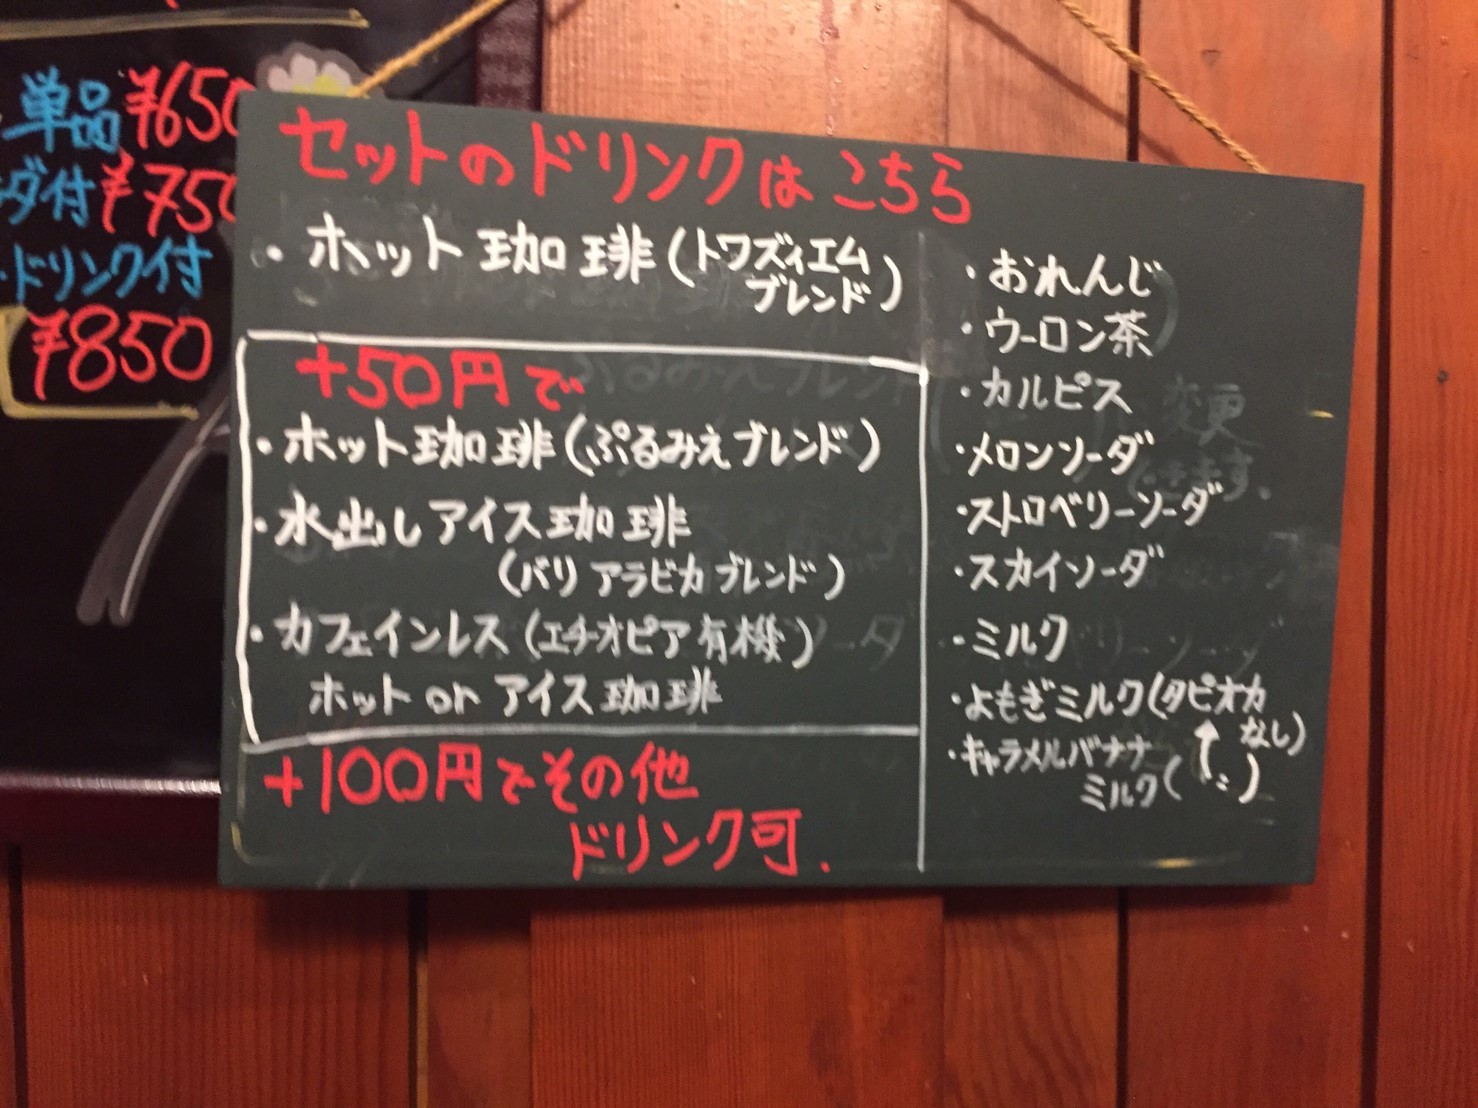 単品 ¥650
ダ付 ¥750
・ドリンク付
¥850
セットのドリンクはこちら
・ホット珈琲(トワズィエム
ブレンド)
+50円で
・ホット珈琲(ぷるみえブレンド)
・水出しアイス珈琲
(バリアラビカブレンド)
・カフェインレス(エチオピア有機)
ホット or アイス珈琲
+100円でその他
ドリンク可.
・おれんじ
・ウーロン茶
・カルピス
・メロンソーダ
・ストロベリーソーダ
・スカイソーダ
・ミルク
・よもぎミルク(タピオカ
なし)
・キャラメルバナナ
ミルク(〃)